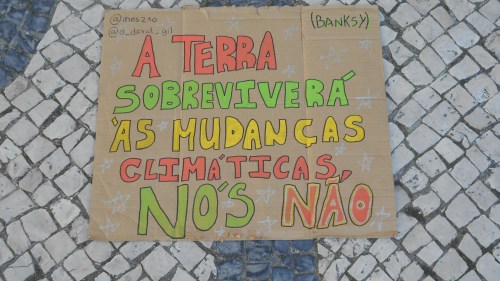 @ines210
@a_daval_gil
(BANKSY)
A TERRA
SOBREVIVERÁ
ÀS MUDANÇAS
CLIMÁTICAS,
NÓS NÃO